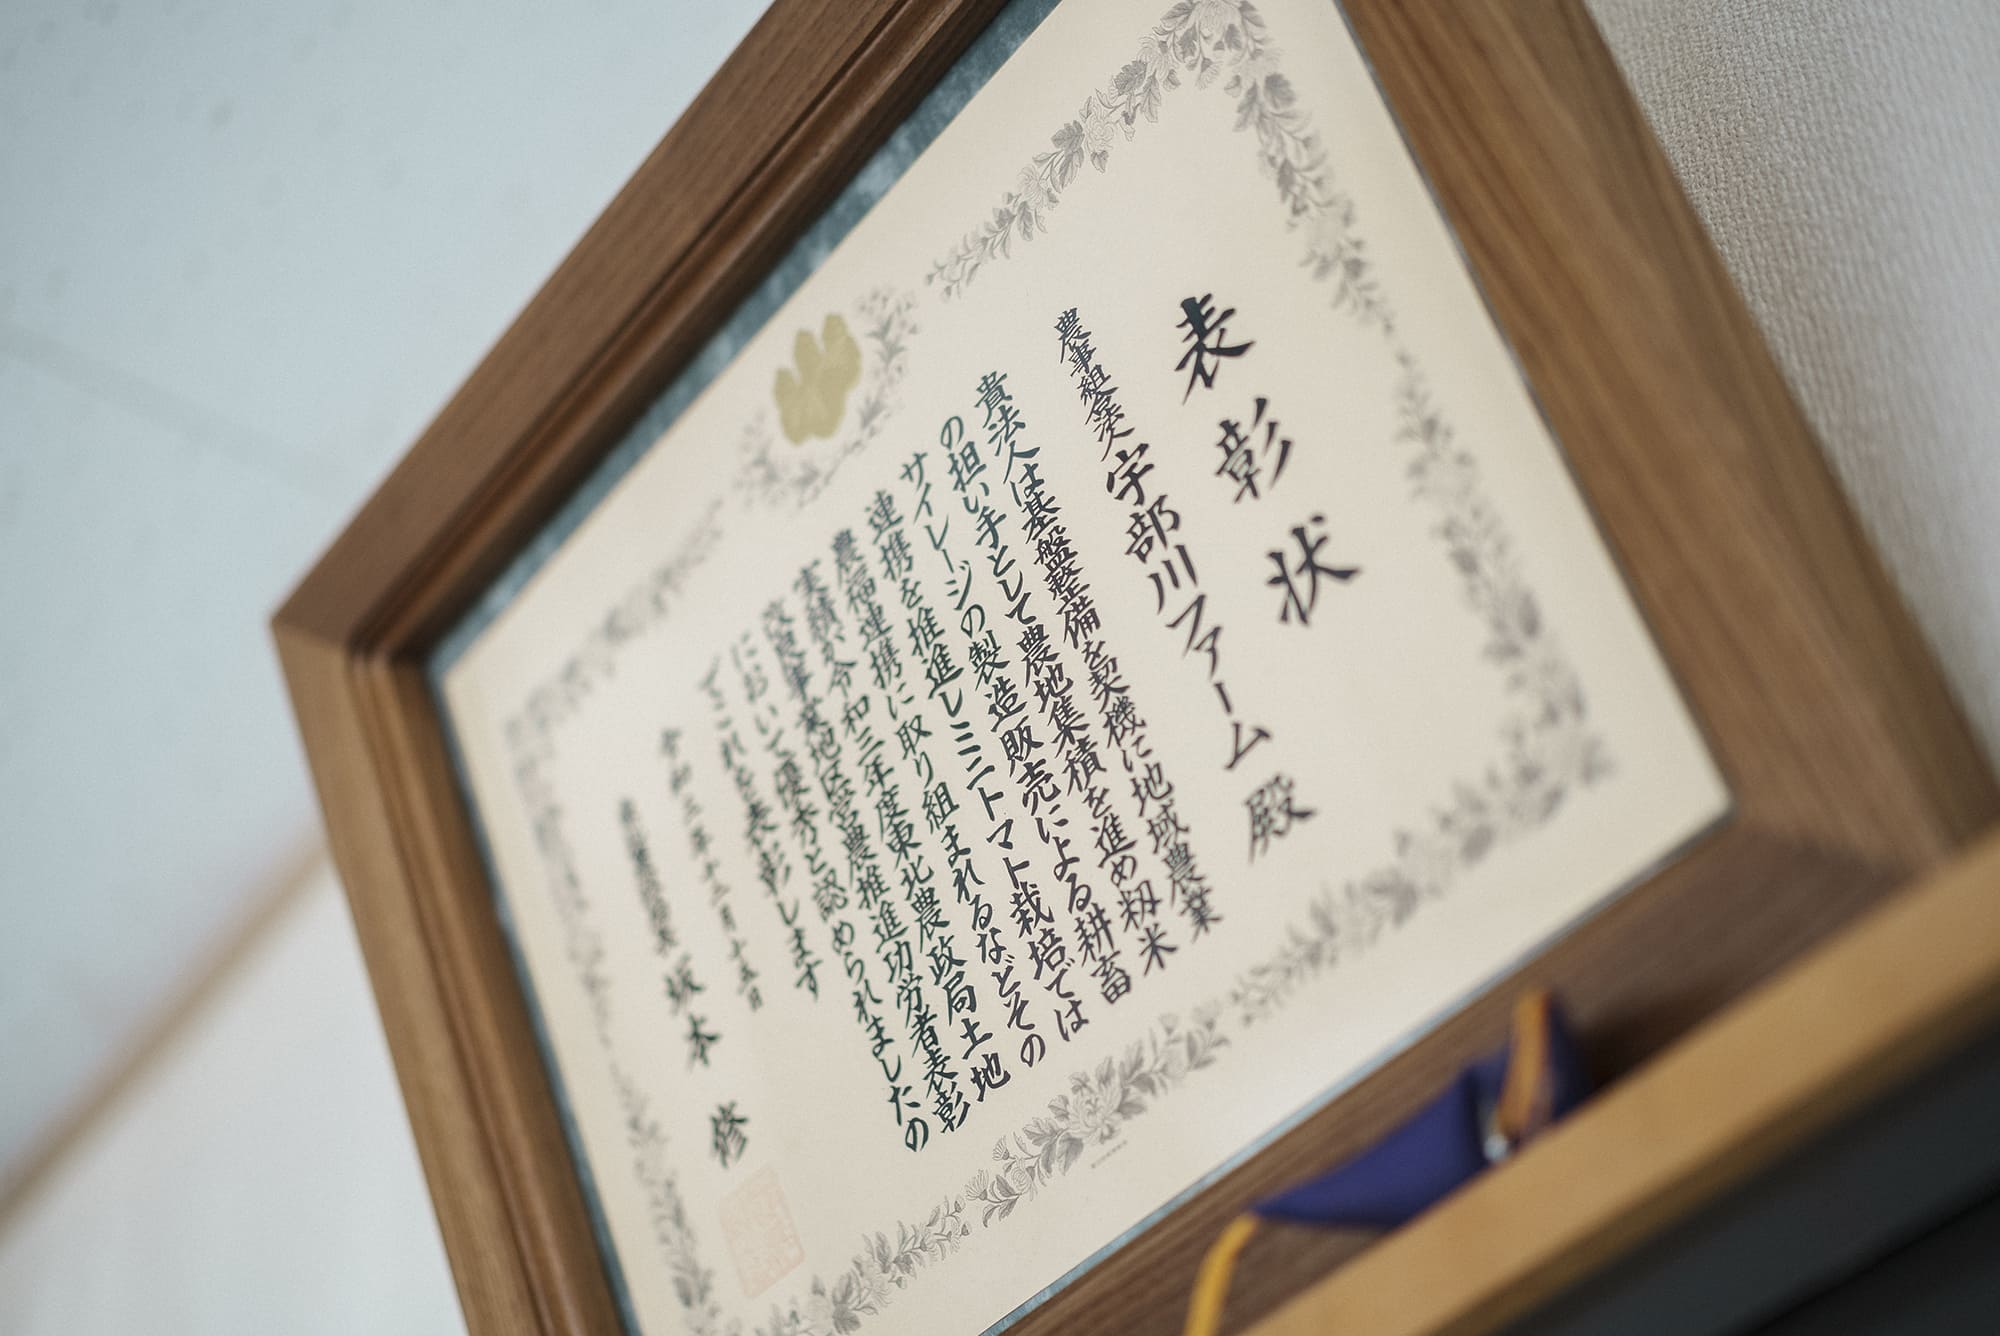 表彰状
農事組合法人 宇部川ファーム 殿
貴法人は基盤整備を契機に地域農業
の担い手として農地集積を進め籾米
サイレージの製造販売による耕畜
連携を推進しミニトマト栽培では
農福連携に取り組まれるなどその
実績が令和三年度東北農政局土地
改良事業地区営農推進功労者表彰
において優秀と認められましたの
でこれを表彰します
令和三年十二月十五日
坂本 修